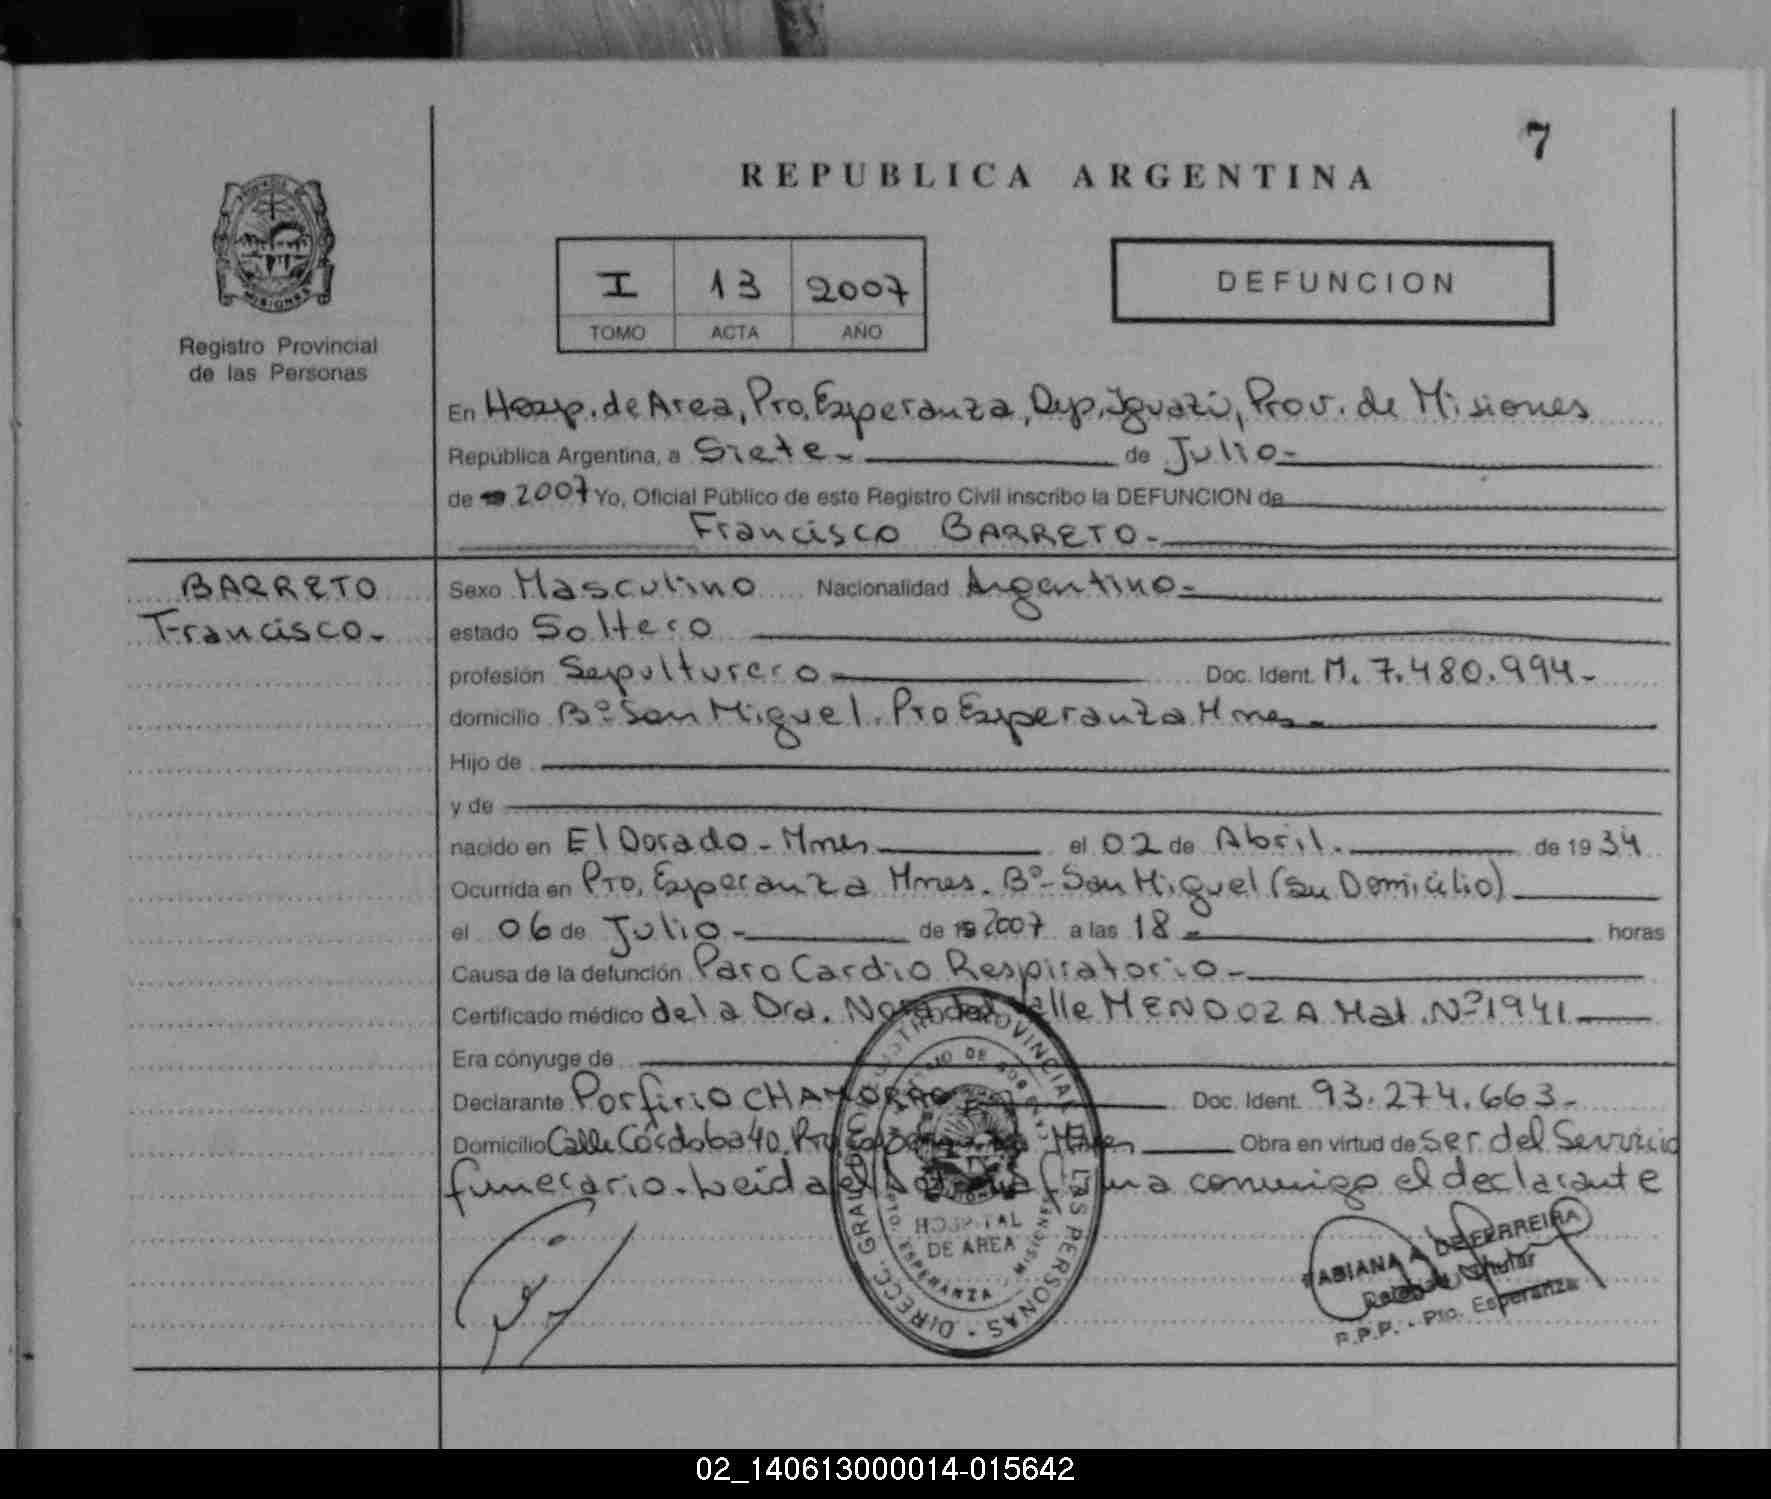 7
REPUBLICA ARGENTINA
MISIONES
Registro Provincial
de las Personas
I 13 2007
TOMO ACTA AÑO
DEFUNCION
En Hosp. de Area, Pto. Esperanza, Dep. Iguazú, Prov. de Misiones
República Argentina, a Siete.- de Julio-
de 2007 Yo, Oficial Público de este Registro Civil inscribo la DEFUNCION de
Francisco BARRETO.-
BARRETO
Francisco.-
Sexo Masculino Nacionalidad Argentino-
estado Soltero
profesión Sepulturero Doc. Ident. M. 7.480.994-
domicilio Bº San Miguel. Pto Esperanza Mnes.
Hijo de
y de
nacido en El Dorado - Mnes el 02 de Abril. de 1934
Ocurrida en Pto. Esperanza Mnes. Bº- San Miguel (su Domicilio)
el 06 de Julio- de 19 2007 a las 18 horas
Causa de la defunción Paro Cardio Respiratorio-
Certificado médico de la Dra. Nora del Valle MENDOZA Mat. Nº 1941
Era cónyuge de
Declarante Porfirio CHAMORRO Doc. Ident. 93.274.663-
Domicilio Calle Córdoba 40, Pto Esperanza Mnes Obra en virtud de ser del Servicio
funerario. Leida el Acta firma conmigo el declarante
DIRECC. GRAL. DEL REGISTRO PROVINCIAL DE LAS PERSONAS
MINISTERIO DE GOBIERNO
HOSPITAL
DE AREA
PTO. ESPERANZA - MISIONES
FABIANA A. DE FERREIRA
Titular
R.P.P. - Pto. Esperanza
02_140613000014-015642